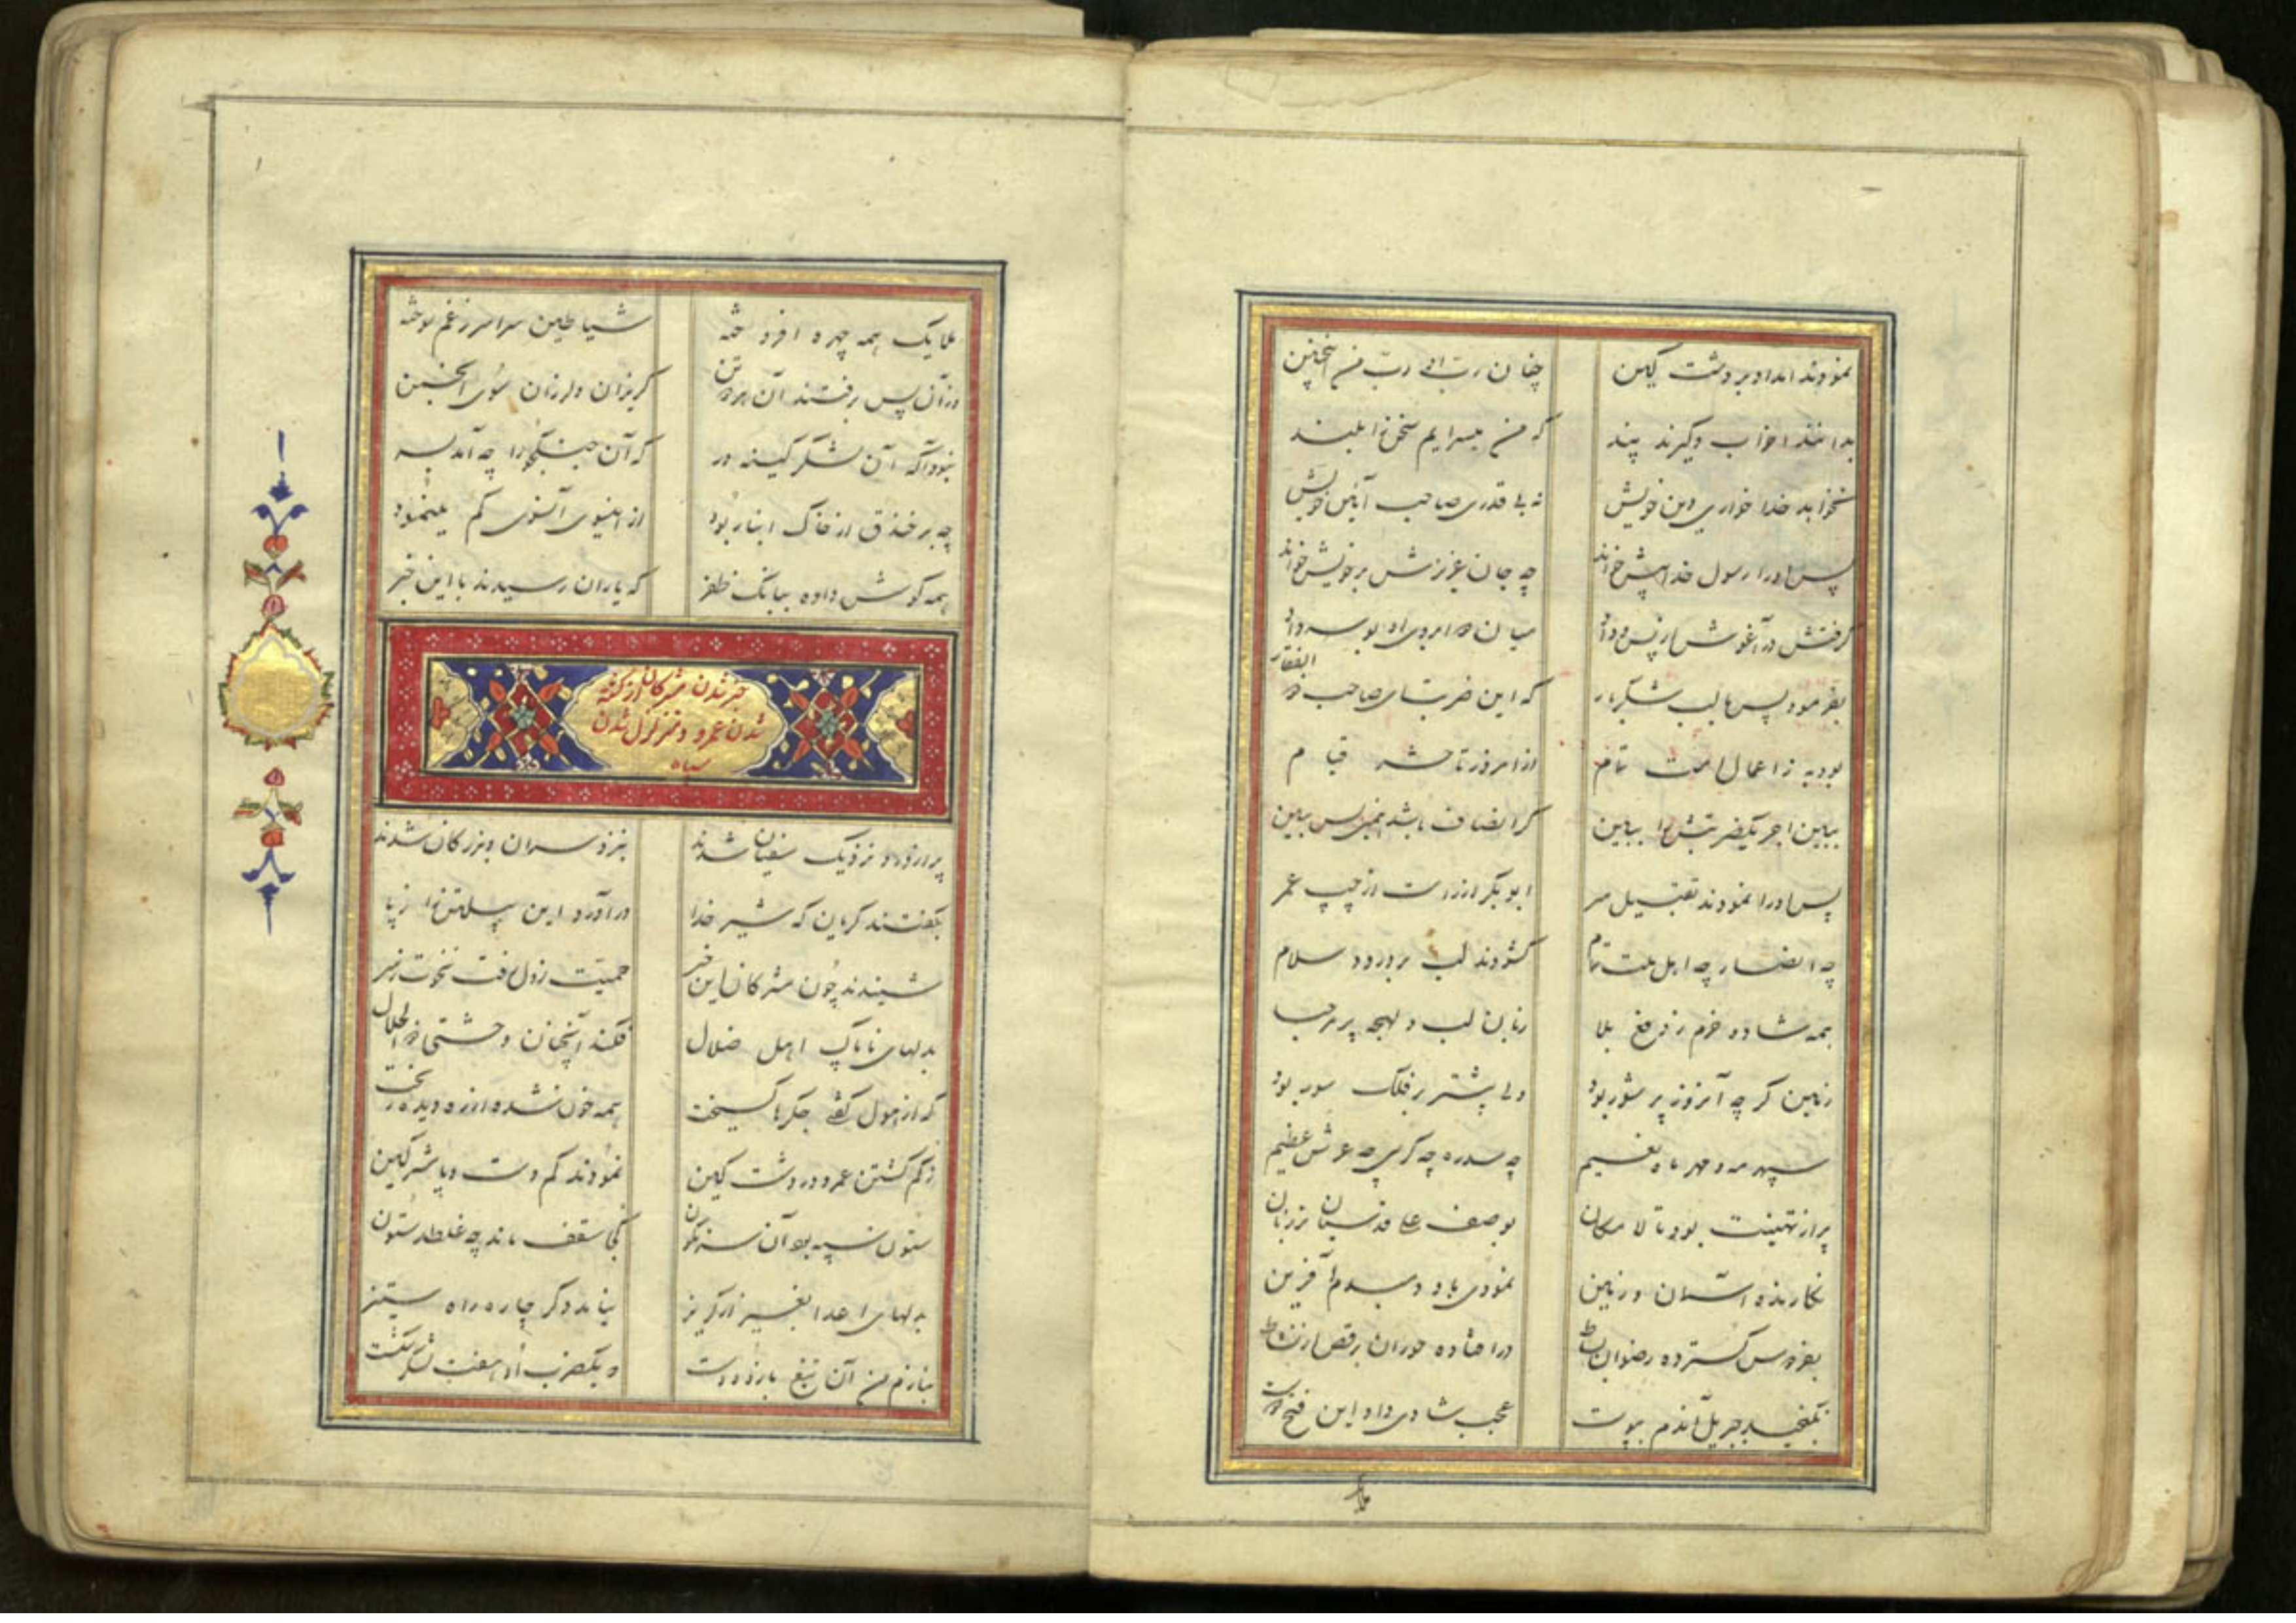 نمودند امداد بر دشت کین چنان رب ابی رب من همچنین
بدانند احزاب و گیرند پند که من میسرایم سخن را بلند
نخواهد خدا خواری دین خویش نه بی قدری صاحب آیین خویش
پس او را رسول خدا پیش خواند چه جان عزیزش بر خویش خواند
گرفتش در آغوش میان دو ابروی او بوسه داد
بفرمود پس با لب شکربار که این ضربتهای صاحب ذو الفقار
بود به ز اعمال امت تمام از امروز تا حشر قیام
ببین اجر یکضربتش را ببین گر انصاف باشد همین بس ببین
پس او را نمودند تقبیل سر ابوبکر از راست از چپ عمر
چه انصار چه اهل ملت تمام گشودند لب بر درود و سلام
همه شاد و خرم ز دفع بلا زبان لب و لهجه پر مرحبا
زمین گرچه آنروز پر شور بود ولی بیشتر بر فلک سور بود
سپهر مه و مهر چه سدره چه کرسی چه عرش عظیم
پر از تهنیت بود تا لامکان بوصف علی قدسیان تر زبان
نگارنده آسمان و زمین نمودی باو دمبدم آفرین
بفردوس گسترده رضوان بساط در افتاده حوران برقص از نشاط
نمیگنجید جبریل آندم بپوست عجب شادی داد این فتح دوست
ملایک
ملایک همه چهره افروخته شیاطین سراسر ز غم سوخته
وزآن پس برفتند آن هر دو تن گریزان و لرزان سوی انجمن
نبود آگه آن لشکر کینه ور که آن جنگجو را چه آمد بسر
چه بر خندق از خاک انبار بود از اینسوی آنسوی کم مینمود
همه گوش داده ببانگ ظفر که یاران رسیدند با این خبر
خبر شدن مشرکان از کشته
شدن عمرو و متزلزل شدن
سپاه
پر از درد نزدیک سفیان شدند بنزد سران و بزرگان شدند
بگفتند گریان که شیر خدا درآورد این پیلتن را ز پا
شنیدند چون مشرکان این خبر حمیت ز دل رفت نخوت ز سر
بدلهای ناپاک اهل ضلال فکند آنچنان وحشتی ذو الجلال
که از هول جگرها گسیخت همه خون شده از ره دیده ریخت
ز کم گشتن عمرو در دشت کین نمودند گم دست و پا مشرکین
ستون سپه بود آن سرنگون کجا سقف ماند چه غلطد ستون
بدلهای اعدا بغیر از گریز نیامد دگر چاره راه ستیز
بنازم من آن تیغ بازو و دست که یکضرب او هفت لشکر شکست